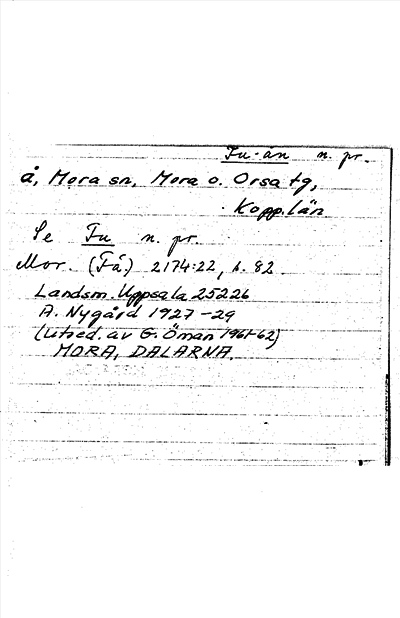 Fu-ån n. pr.
å, Mora sn, Mora o. Orsa tg,
Kopp.län
Se Fu n. pr.
Mor. (Få.) 2174:22, s. 82
Landsm. Uppsala 25226
A. Nygård 1927-29
(Utred. av G. Öman 1961-62)
MORA, DALARNA.